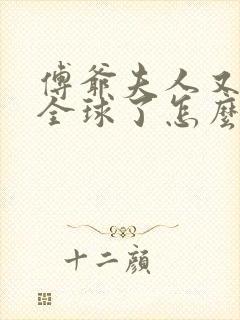 傅爺夫人又
全球了怎麼
十二顏